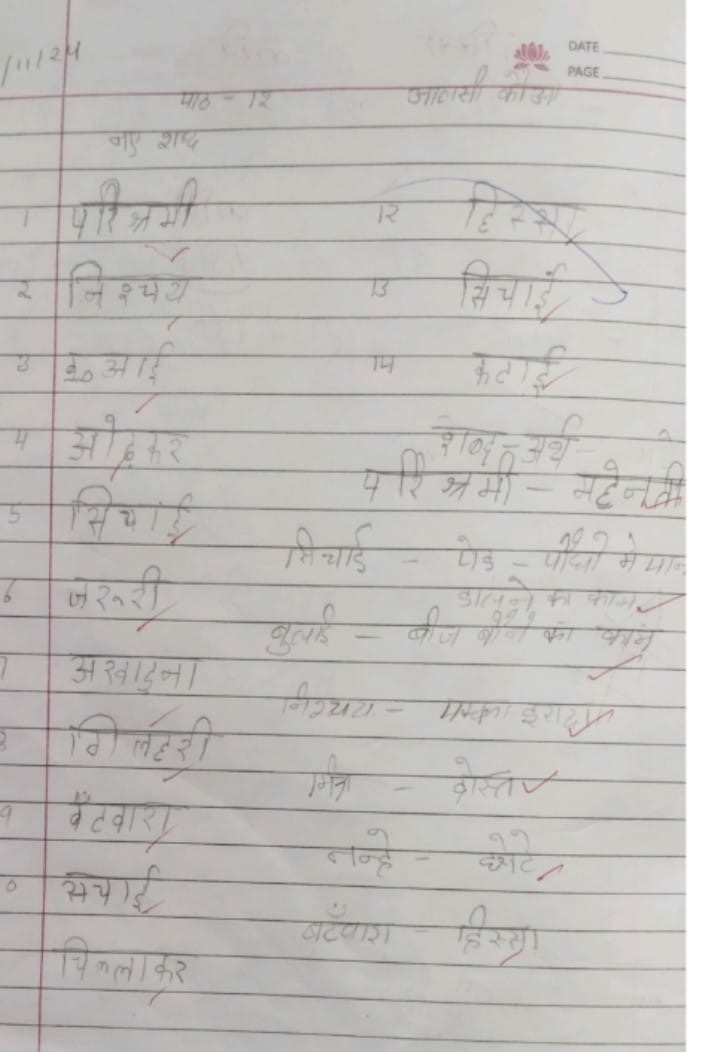 /11/24
DATE
PAGE
पाठ - 12 आलसी कौआ
नए शब्द
1 परिश्रमी
2 निश्चय
3
4 ओढ़कर
5 सिचाई
6 जरूरी
7 अखाड़ना
8 गिलहरी
9 बँटवारा
0 सचाई
चिल्लाकर
12 हिस्सा
13 सिचाई
14 कटाई
शब्द-अर्थ
परिश्रमी - महेनती
सिचाई - पेड - पौधो मे पान
डालने का काम
बुलाई - बीज बोने का काम
निश्चय - पक्का इरादा
मित्र - दोस्त
नन्हे - छोटे
बटँवारा - हिस्सा